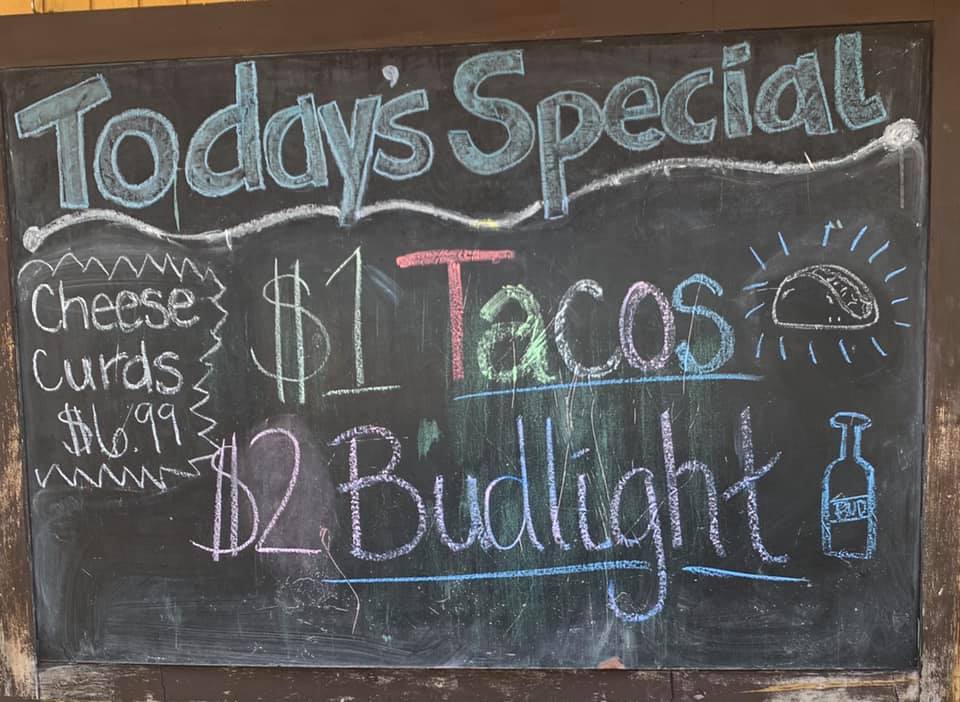 Today's Special
Cheese
Curds
$6.99
$1 Tacos
$2 Budlight
BUD